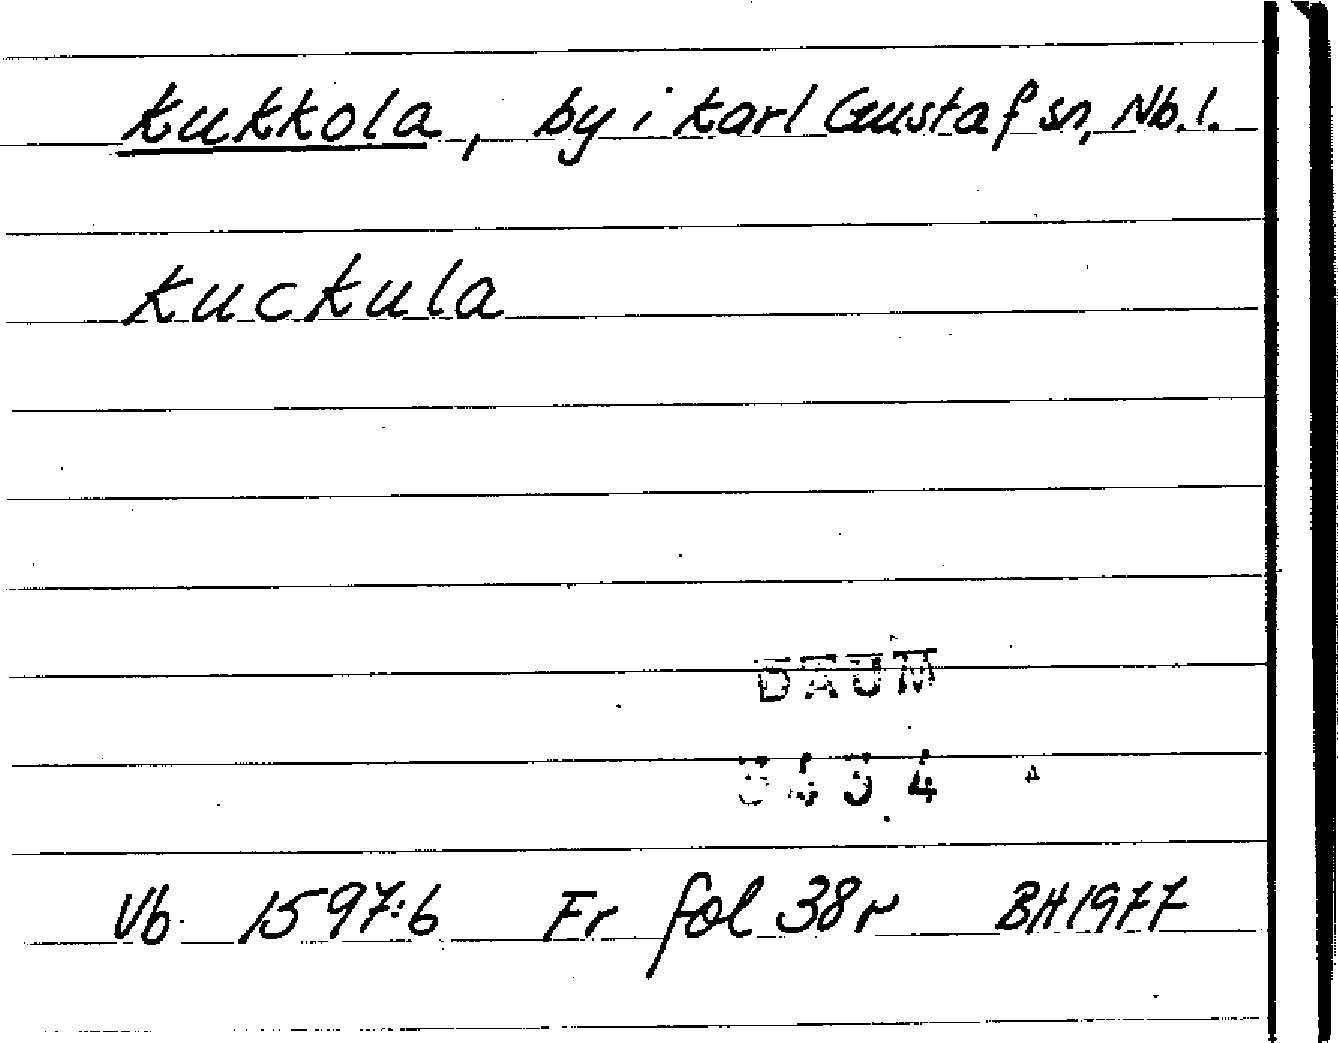 Kukkola, by i Karl Gustaf sn, Nb.l.
Kuckula
DAUM
Vb. 1597:6 Fr fol 38r BH1977